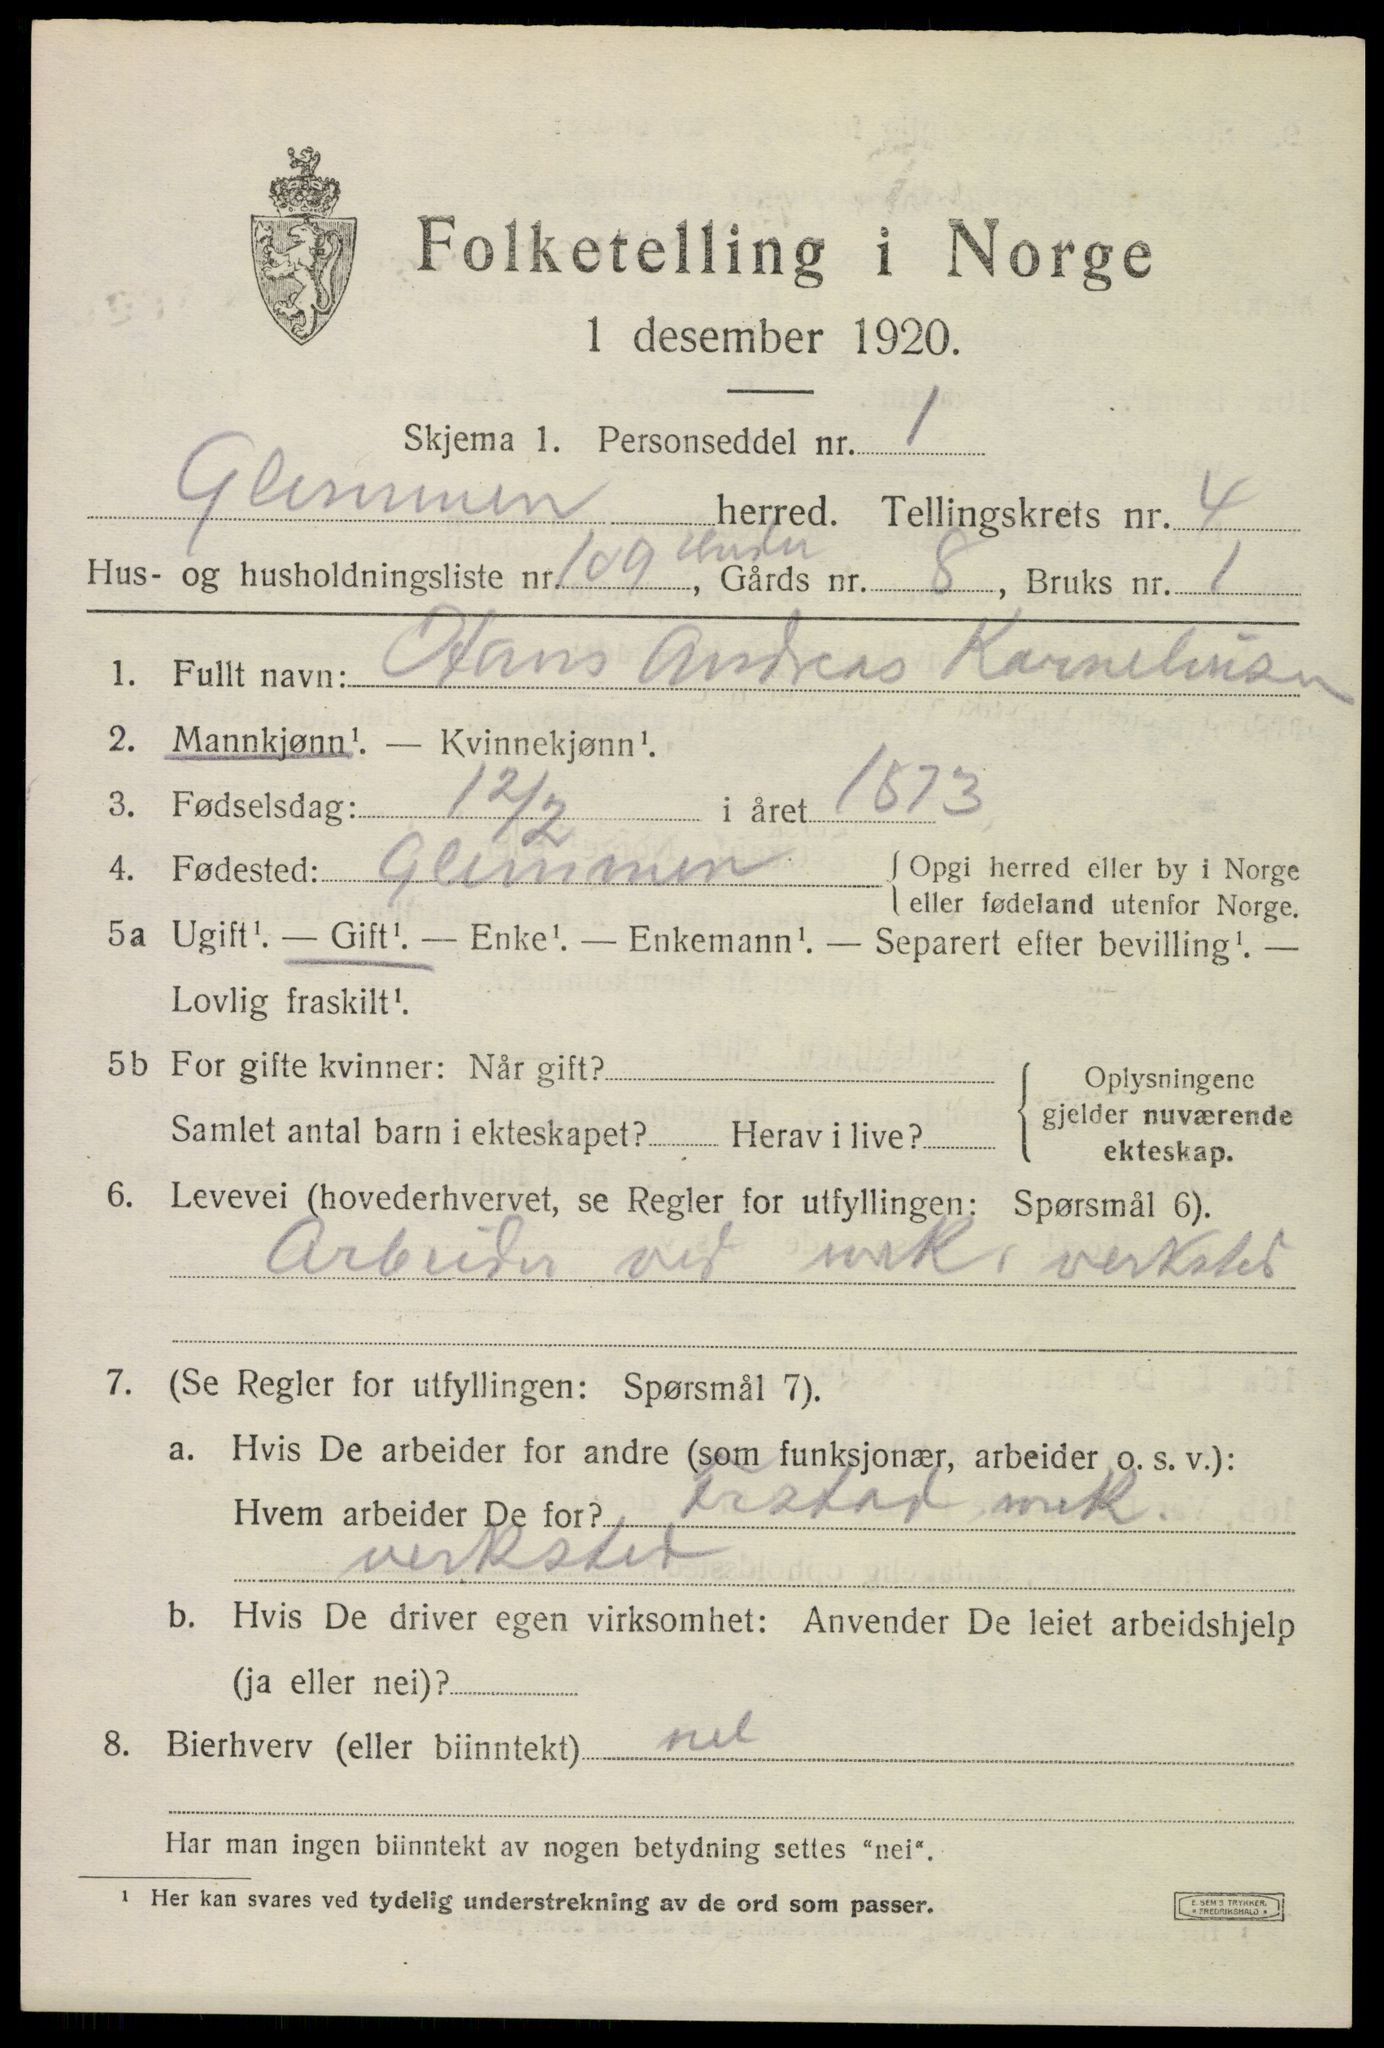 Folketelling i Norge
1 desember 1920.
Skjema 1. Personseddel nr. 1
Glemmen herred. Tellingskrets nr. 4
Hus- og husholdningsliste nr. 109, under Gårds nr. 8, Bruks nr. 1
1. Fullt navn: Hans Andreas Karneliusen
2. Mannkjønn¹. — Kvinnekjønn¹.
3. Fødselsdag: 12/2 i året 1873
4. Fødested: Glemmen { Opgi herred eller by i Norge
eller fødeland utenfor Norge.
5a Ugift¹. — Gift¹. — Enke¹. — Enkemann¹. — Separert efter bevilling¹. —
Lovlig fraskilt¹.
5b For gifte kvinner: Når gift?
Samlet antal barn i ekteskapet? Herav i live?
Oplysningene
gjelder nuværende
ekteskap.
6. Levevei (hovederhvervet, se Regler for utfyllingen: Spørsmål 6).
Arbeider ved mek. verksted
7. (Se Regler for utfyllingen: Spørsmål 7).
a. Hvis De arbeider for andre (som funksjonær, arbeider o. s. v.):
Hvem arbeider De for? Fr.stad mek.
verksted
b. Hvis De driver egen virksomhet: Anvender De leiet arbeidshjelp
(ja eller nei)?
8. Bierhverv (eller biinntekt) nei
Har man ingen biinntekt av nogen betydning settes "nei".
¹ Her kan svares ved tydelig understrekning av de ord som passer.
E. SEM'S TRYKKER.
* FREDRIKSHALD *